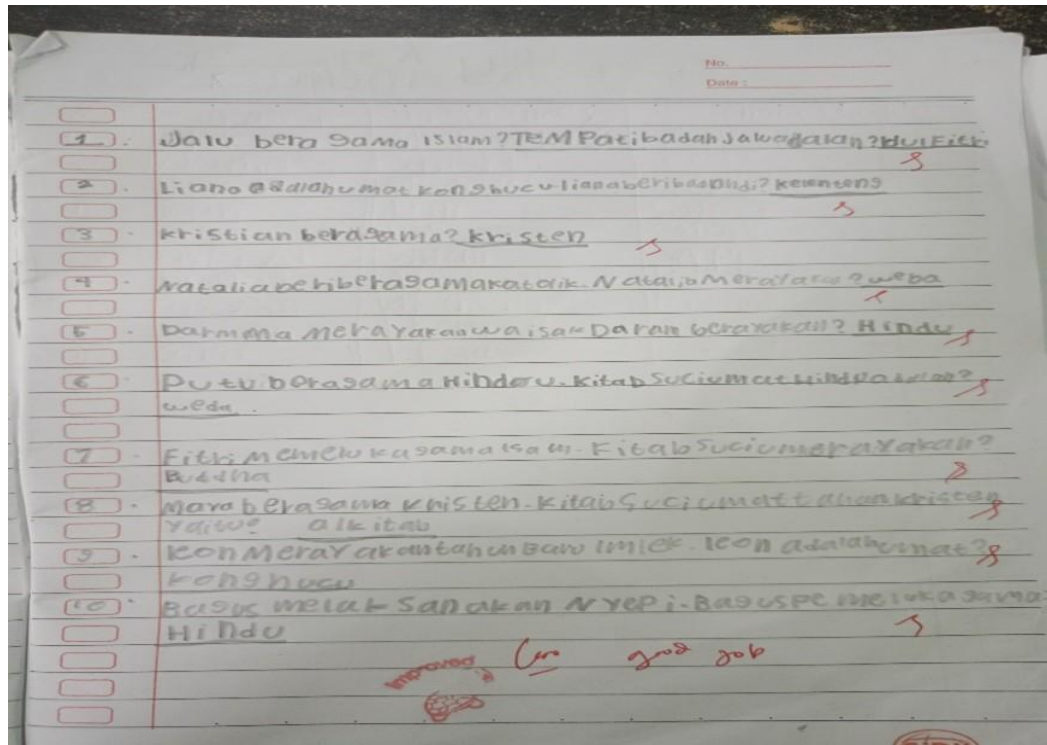 No.
Date:
1. Jalu bera gama islam? TEMPatibadah Jalu adalan? Hulfitri
2. Liana adalah umat konghucu liana beribadah di? kelenteng
3. kristian beragama? kristen
4. Natalia beragama katolik. Natalia Merayakan?
5. Darmma merayakan waisak Daram? Hindu
6. Putu boragama Hinderu. Kitab Suci umat Hindu adalan?
weda.
7. Fitri memelukagama Kitab Suci merayakan?
Buddha
8. Mara beragama kristen. Kitab Suci umat kristen
Yaitu? alkitab
9. Keon Merayakan tahun Baru imlek. Keon adalah umat?
Konghucu
10. Bagus melaksanakan NYepi. Bagus memelukagama
Hindu
Improved good job